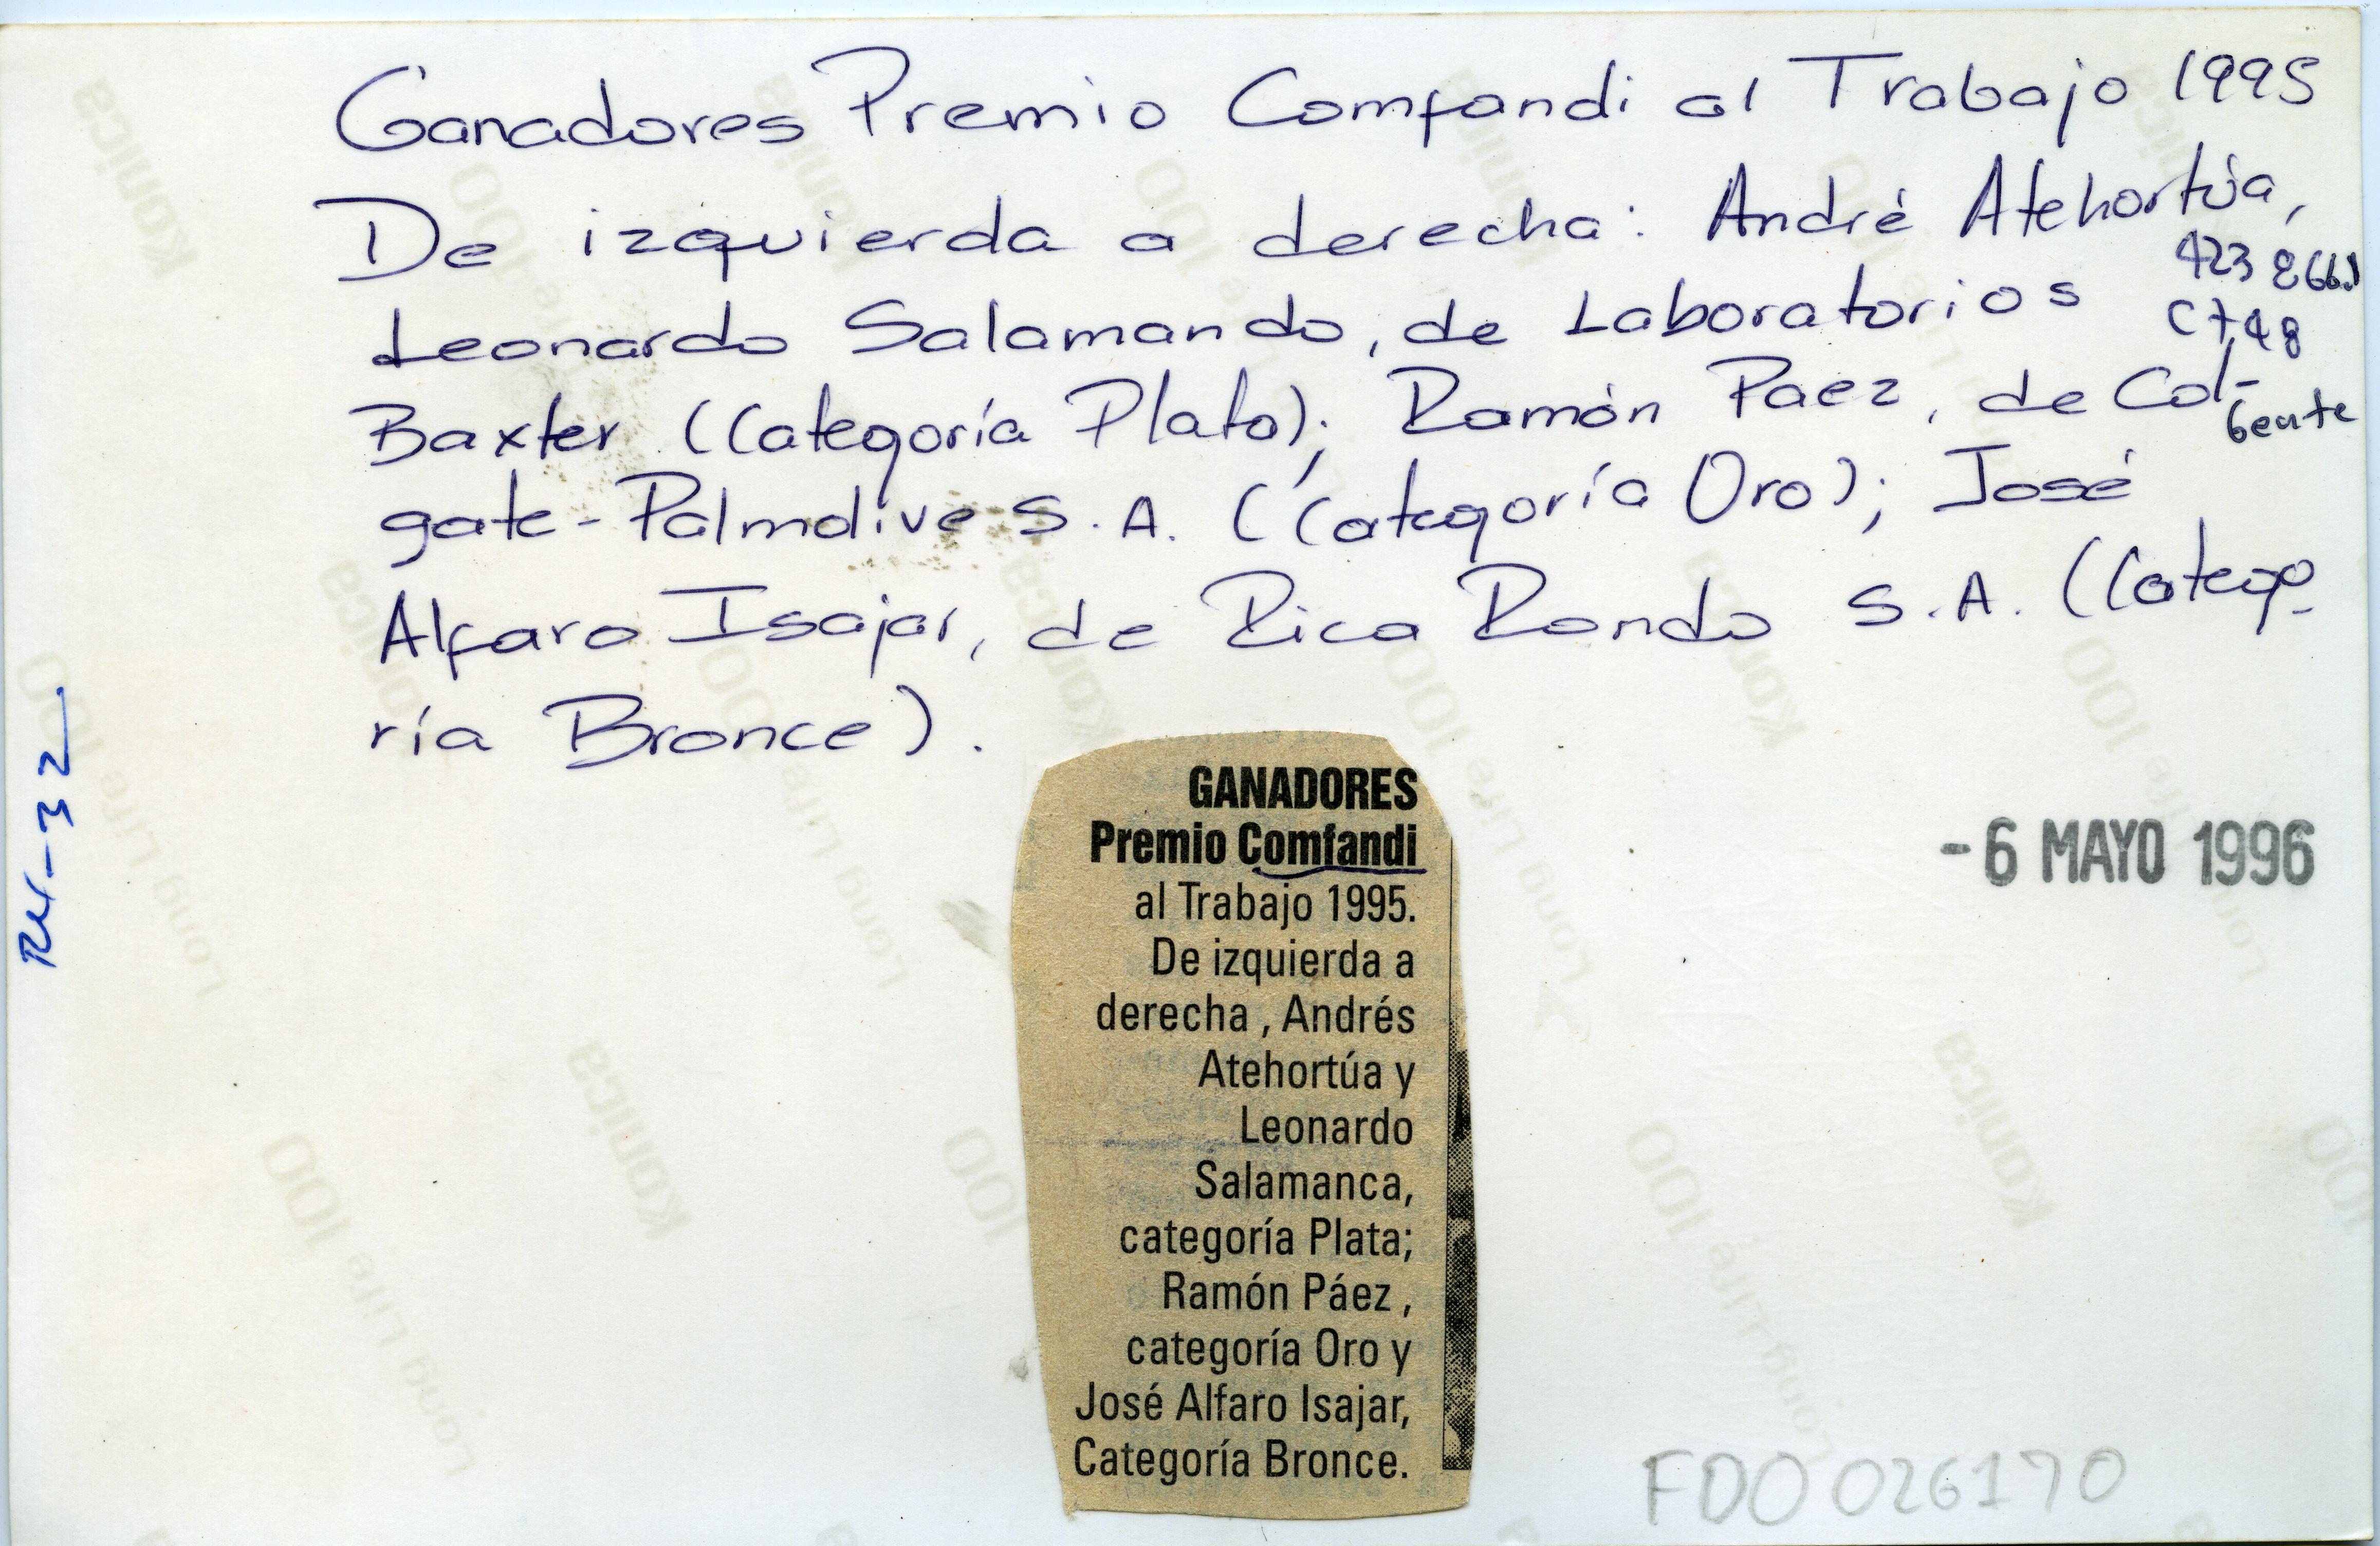 Ganadores Premio Comfandi al Trabajo 1995
De izquierda a derecha: André Atehortúa,
Leonardo Salamando, de Laboratorios
Baxter (Categoría Plata); Ramón Paez, de Col-
gate-Palmolive S.A. (Categoría Oro); José
Alfaro Isajar, de Rica Rondo S.A. (Catego-
ría Bronce).
423
C7,48
Gente
GANADORES
Premio Comfandi
al Trabajo 1995.
De izquierda a
derecha , Andrés
Atehortúa y
Leonardo
Salamanca,
categoría Plata;
Ramón Páez ,
categoría Oro y
José Alfaro Isajar,
Categoría Bronce.
-6 MAYO 1996
FDO 026170
Konica
Long Life 100